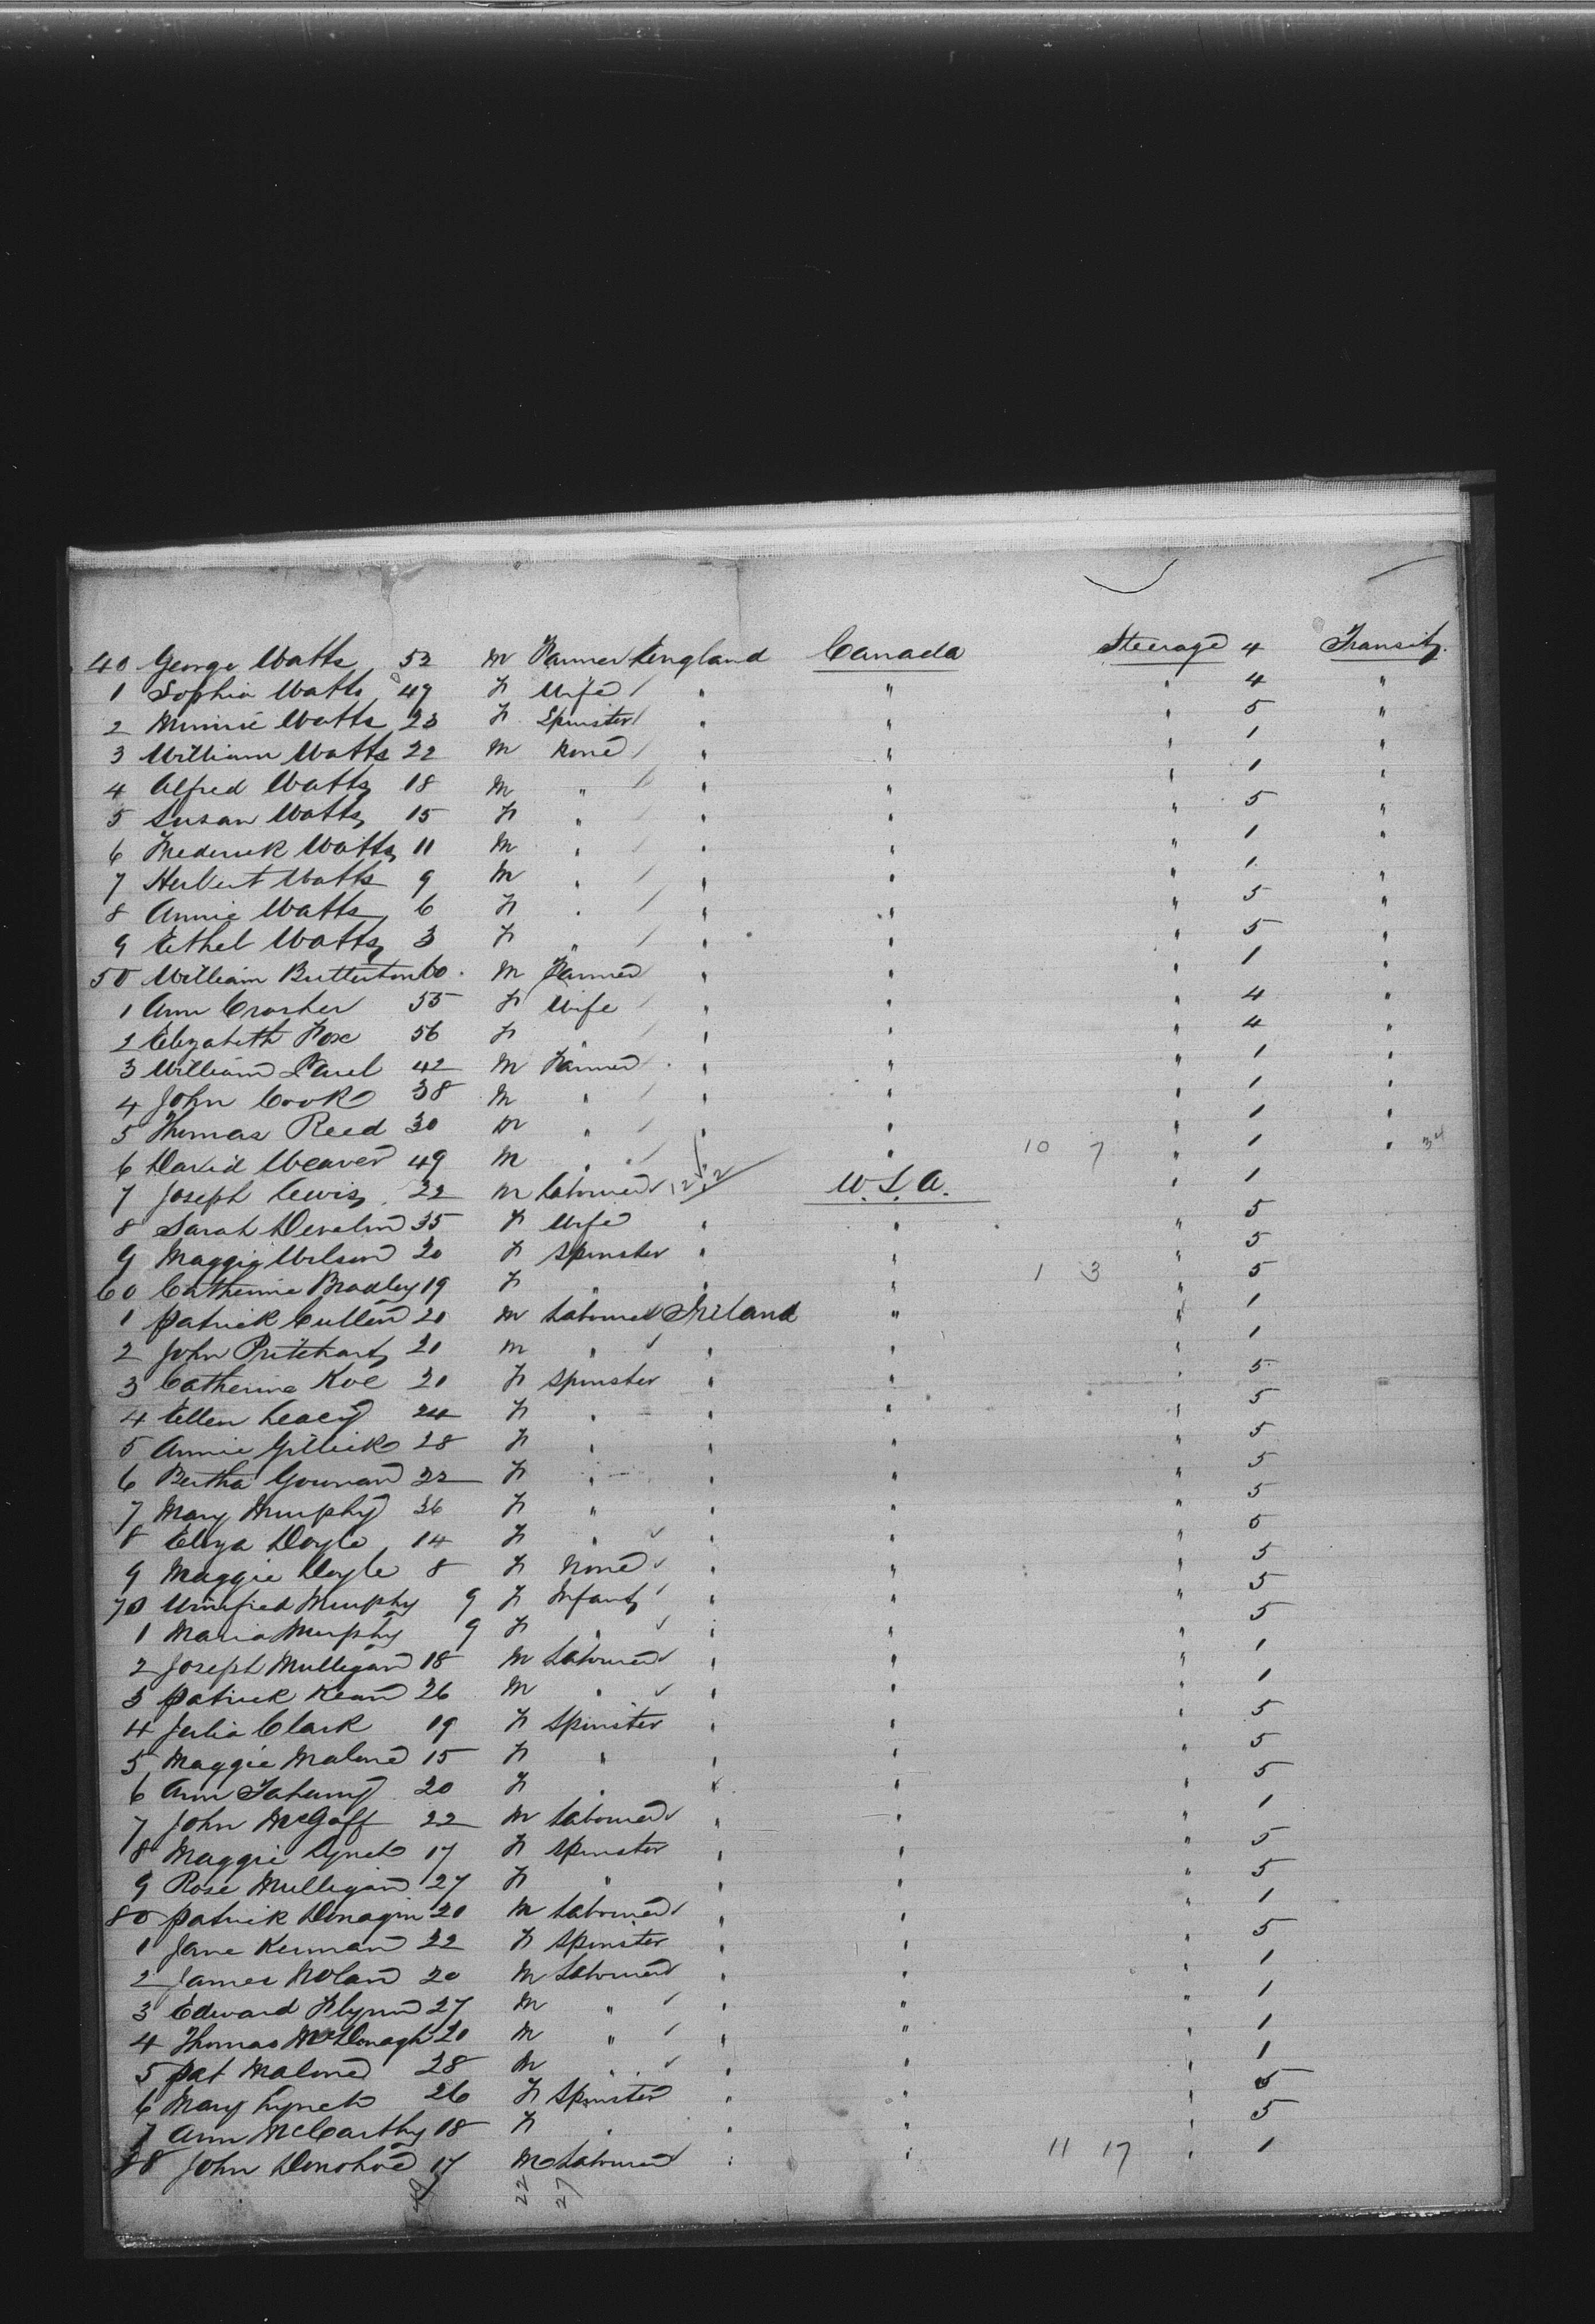 40 George Watts 52 M Farmer England Canada Steerage 4 Transit
1 Sophia Watts 49 F Wife " " " 4 "
2 Minnie Watts 23 F Spinster " " " 5 "
3 William Watts 22 M None " " " 1 "
4 Alfred Watts 18 M " " " " 1 "
5 Susan Watts 15 F " " " " 5 "
6 Frederick Watts 11 M " " " " 1 "
7 Herbert Watts 9 M " " " " 1 "
8 Annie Watts 6 F " " " " 5 "
9 Ethel Watts 3 F " " " " 5 "
50 William Butterton 60 M Farmer " " " 1 "
1 Ann Crosher 55 F Wife " " " 4 "
2 Elizabeth Fox 56 F " " " " 4 "
3 William 42 M Farmer " " " 1 "
4 John Cook 38 M " " " " 1 "
5 Thomas Reed 30 M " " " " 1 "
6 David Weaver 49 M " " " 10 7 " 1 " 34
7 Joseph Lewis 22 M Labourer U.S.A. " 1
8 Sarah Devalin 35 F Wife " " " 5
9 Maggie Wilson 20 F Spinster " " " 5
60 Catherine Bradley 19 F " " " 1 3 " 5
1 Patrick Cullen 20 M Labourer Ireland " " 1
2 John Pritchart 21 M " " " " 1
3 Catherine Koe 20 F Spinster " " " 5
4 Ellen Leacy 24 F " " " " 5
5 Annie Gillick 28 F " " " " 5
6 Bertha Gownan 22 F " " " " 5
7 Mary Murphy 26 F " " " " 5
8 Eliza Doyle 14 F " " " " 5
9 Maggie Doyle 8 F None " " " 5
70 Winifred Murphy 9 F Infant " " " 5
1 Maria Murphy 9 F " " " " 5
2 Joseph Mulligan 18 M Labourer " " " 1
3 Patrick Kean 26 M " " " " 1
4 Julia Clark 19 F Spinster " " " 5
5 Maggie Malone 15 F " " " " 5
6 Ann 20 F " " " " 5
7 John McGoff 22 M Labourer " " " 1
8 Maggie Lynch 17 F Spinster " " " 5
9 Rose Mulligan 27 F " " " " 5
80 Patrick Donagin 20 M Labourer " " " 1
1 Jane Kernan 22 F Spinster " " " 5
2 James Nolan 20 M Labourer " " " 1
3 Edward Flynn 27 M " " " " 1
4 Thomas McDonagh 20 M " " " " 1
5 Pat Malone 28 M " " " " 1
6 Mary Lynch 26 F Spinster " " " 5
7 Ann McCarthy 18 F " " " " 5
88 John Donohoe 17 M Labourer " " 11 17 " 1
22 27